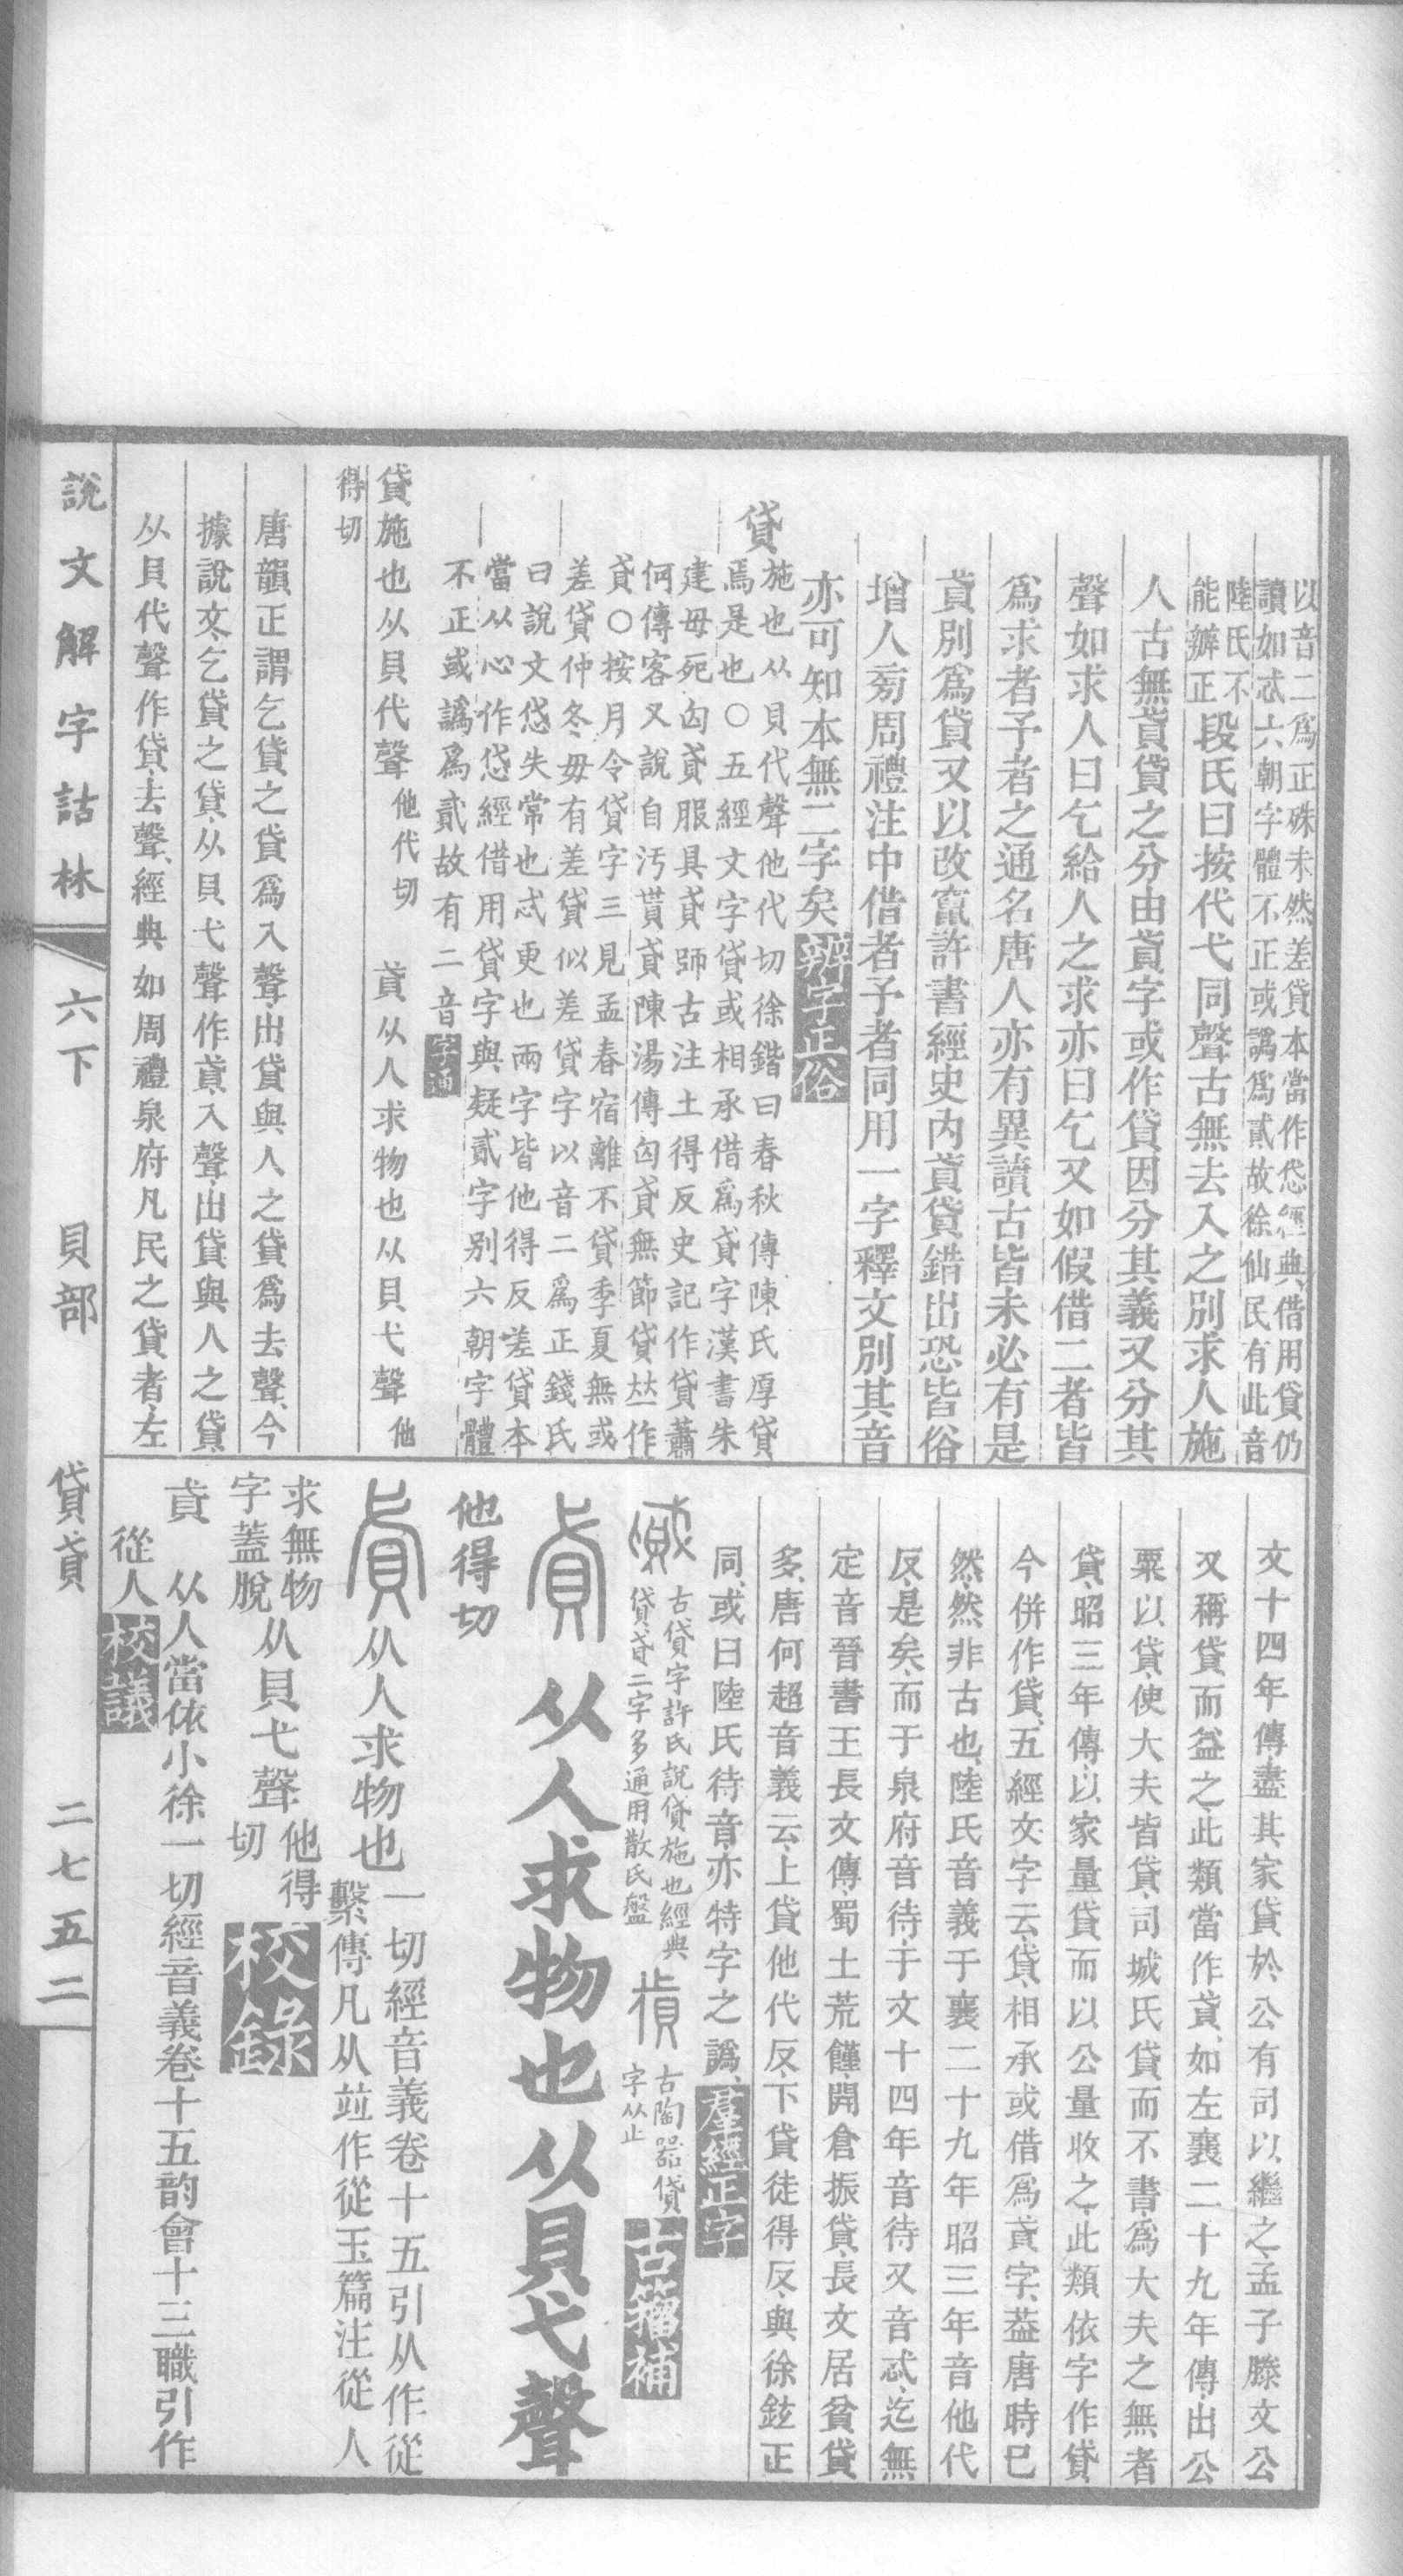 以音二爲正殊未然差貸本當作㤥經典借用貸仍
讀如忒六朝字體不正或譌爲貳故徐仙民有此音
陸氏不
能辨正段氏曰按代弋同聲古無去入之別求人施
人古無貣貸之分由貣字或作貸因分其義又分其
聲如求人曰乞給人之求亦曰乞又如假借二者皆
爲求者予者之通名唐人亦有異讀古皆未必有是
貣別爲貸又以改竄許書經史內貣貸錯出恐皆俗
增人旁周禮注中借者予者同用一字釋文別其音
亦可知本無二字矣辨字正俗
貸
施也从貝代聲他代切徐鍇曰春秋傳陳氏厚貸
焉是也○五經文字貸或相承借爲貣字漢書朱
建母死匃貣服具貣師古注土得反史記作貸蕭
何傳客又說自汚貰貣陳湯傳匃貸無節貸𠀤作
貣○按月令貸字三見孟春宿離不貸季夏無或
差貸仲冬毋有差貸似差貸字以音二爲正錢氏
曰說文㤥失常也忒更也兩字皆他得反差貸本
當从心作㤥經借用貸字與疑貳字別六朝字體
不正或譌爲貳故有二音字通
貸施也从貝代聲他代切 貣从人求物也从貝弋聲他
得切
唐韻正謂乞貸之貸爲入聲出貸與人之貸爲去聲今
據說文乞貸之貸从貝弋聲作貣入聲出貸與人之貸
从貝代聲作貸去聲經典如周禮泉府凡民之貸者左
文十四年傳盡其家貸於公有司以繼之孟子滕文公
又稱貸而益之此類當作貣如左襄二十九年傳出公
粟以貸使大夫皆貸司城氏貸而不書爲大夫之無者
貸昭三年傳以家量貸而以公量收之此類依字作貸
今併作貸五經文字云貸相承或借爲貣字葢唐時已
然然非古也陸氏音義于襄二十九年昭三年音他代
反是矣而于泉府音待于文十四年音待又音忒迄無
定音晉書王長文傳蜀土荒饉開倉振貸長文居貧貸
多唐何超音義云上貸他代反下貸徒得反與徐鉉正
同或曰陸氏待音亦特字之譌羣經正字
古貸字許氏說貸施也經典
貸貣二字多通用散氏盤
古陶器貸
字从止
古籀補
貣 从人求物也从貝弋聲
他得切
貣从人求物也一切經音義卷十五引从作從
繫傳凡从竝作從玉篇注從人
求無物
字蓋脫从貝弋聲他得
切校錄
貣 从人當依小徐一切經音義卷十五韵會十三職引作
從人校議
說文解字詁林 六下 貝部 貸貣 二七五二